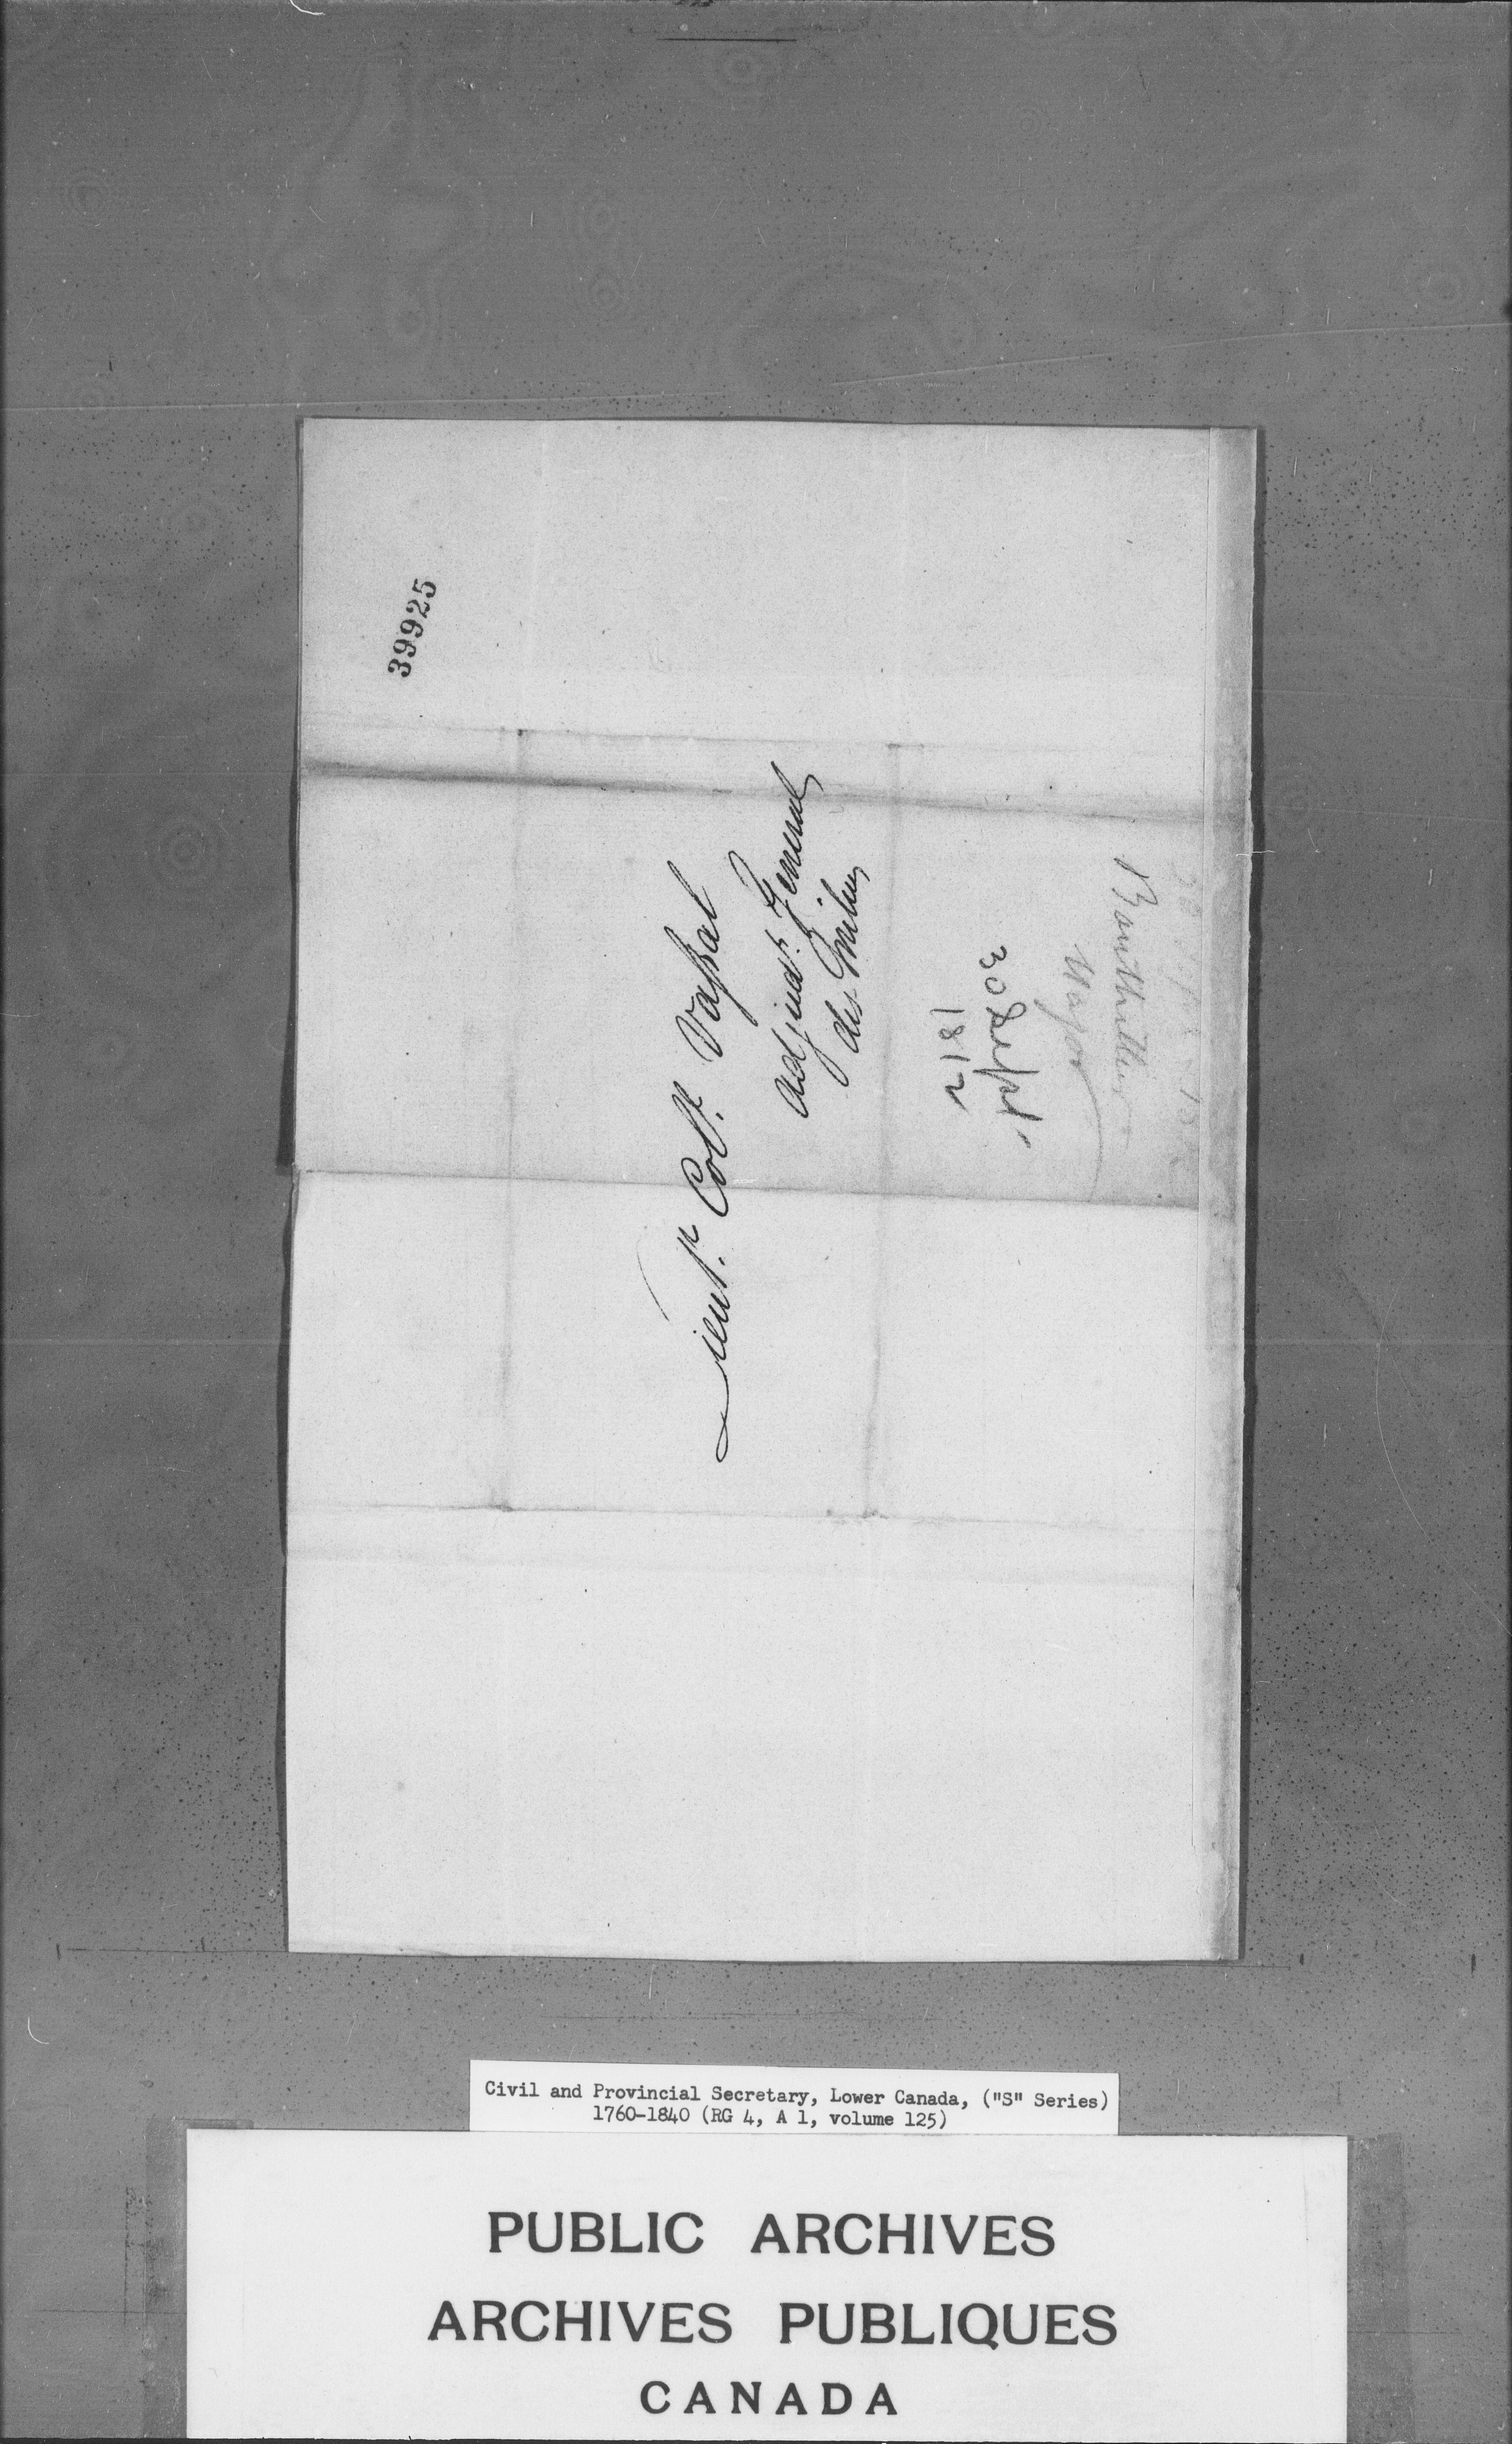 39925
Lieut. Coll. Vassal
adjudt. General
des Milices
30 Sept.
1812
Major
Civil and Provincial Secretary, Lower Canada, ("S" Series)
1760-1840 (RG 4, A 1, volume 125)
PUBLIC ARCHIVES
ARCHIVES PUBLIQUES
CANADA